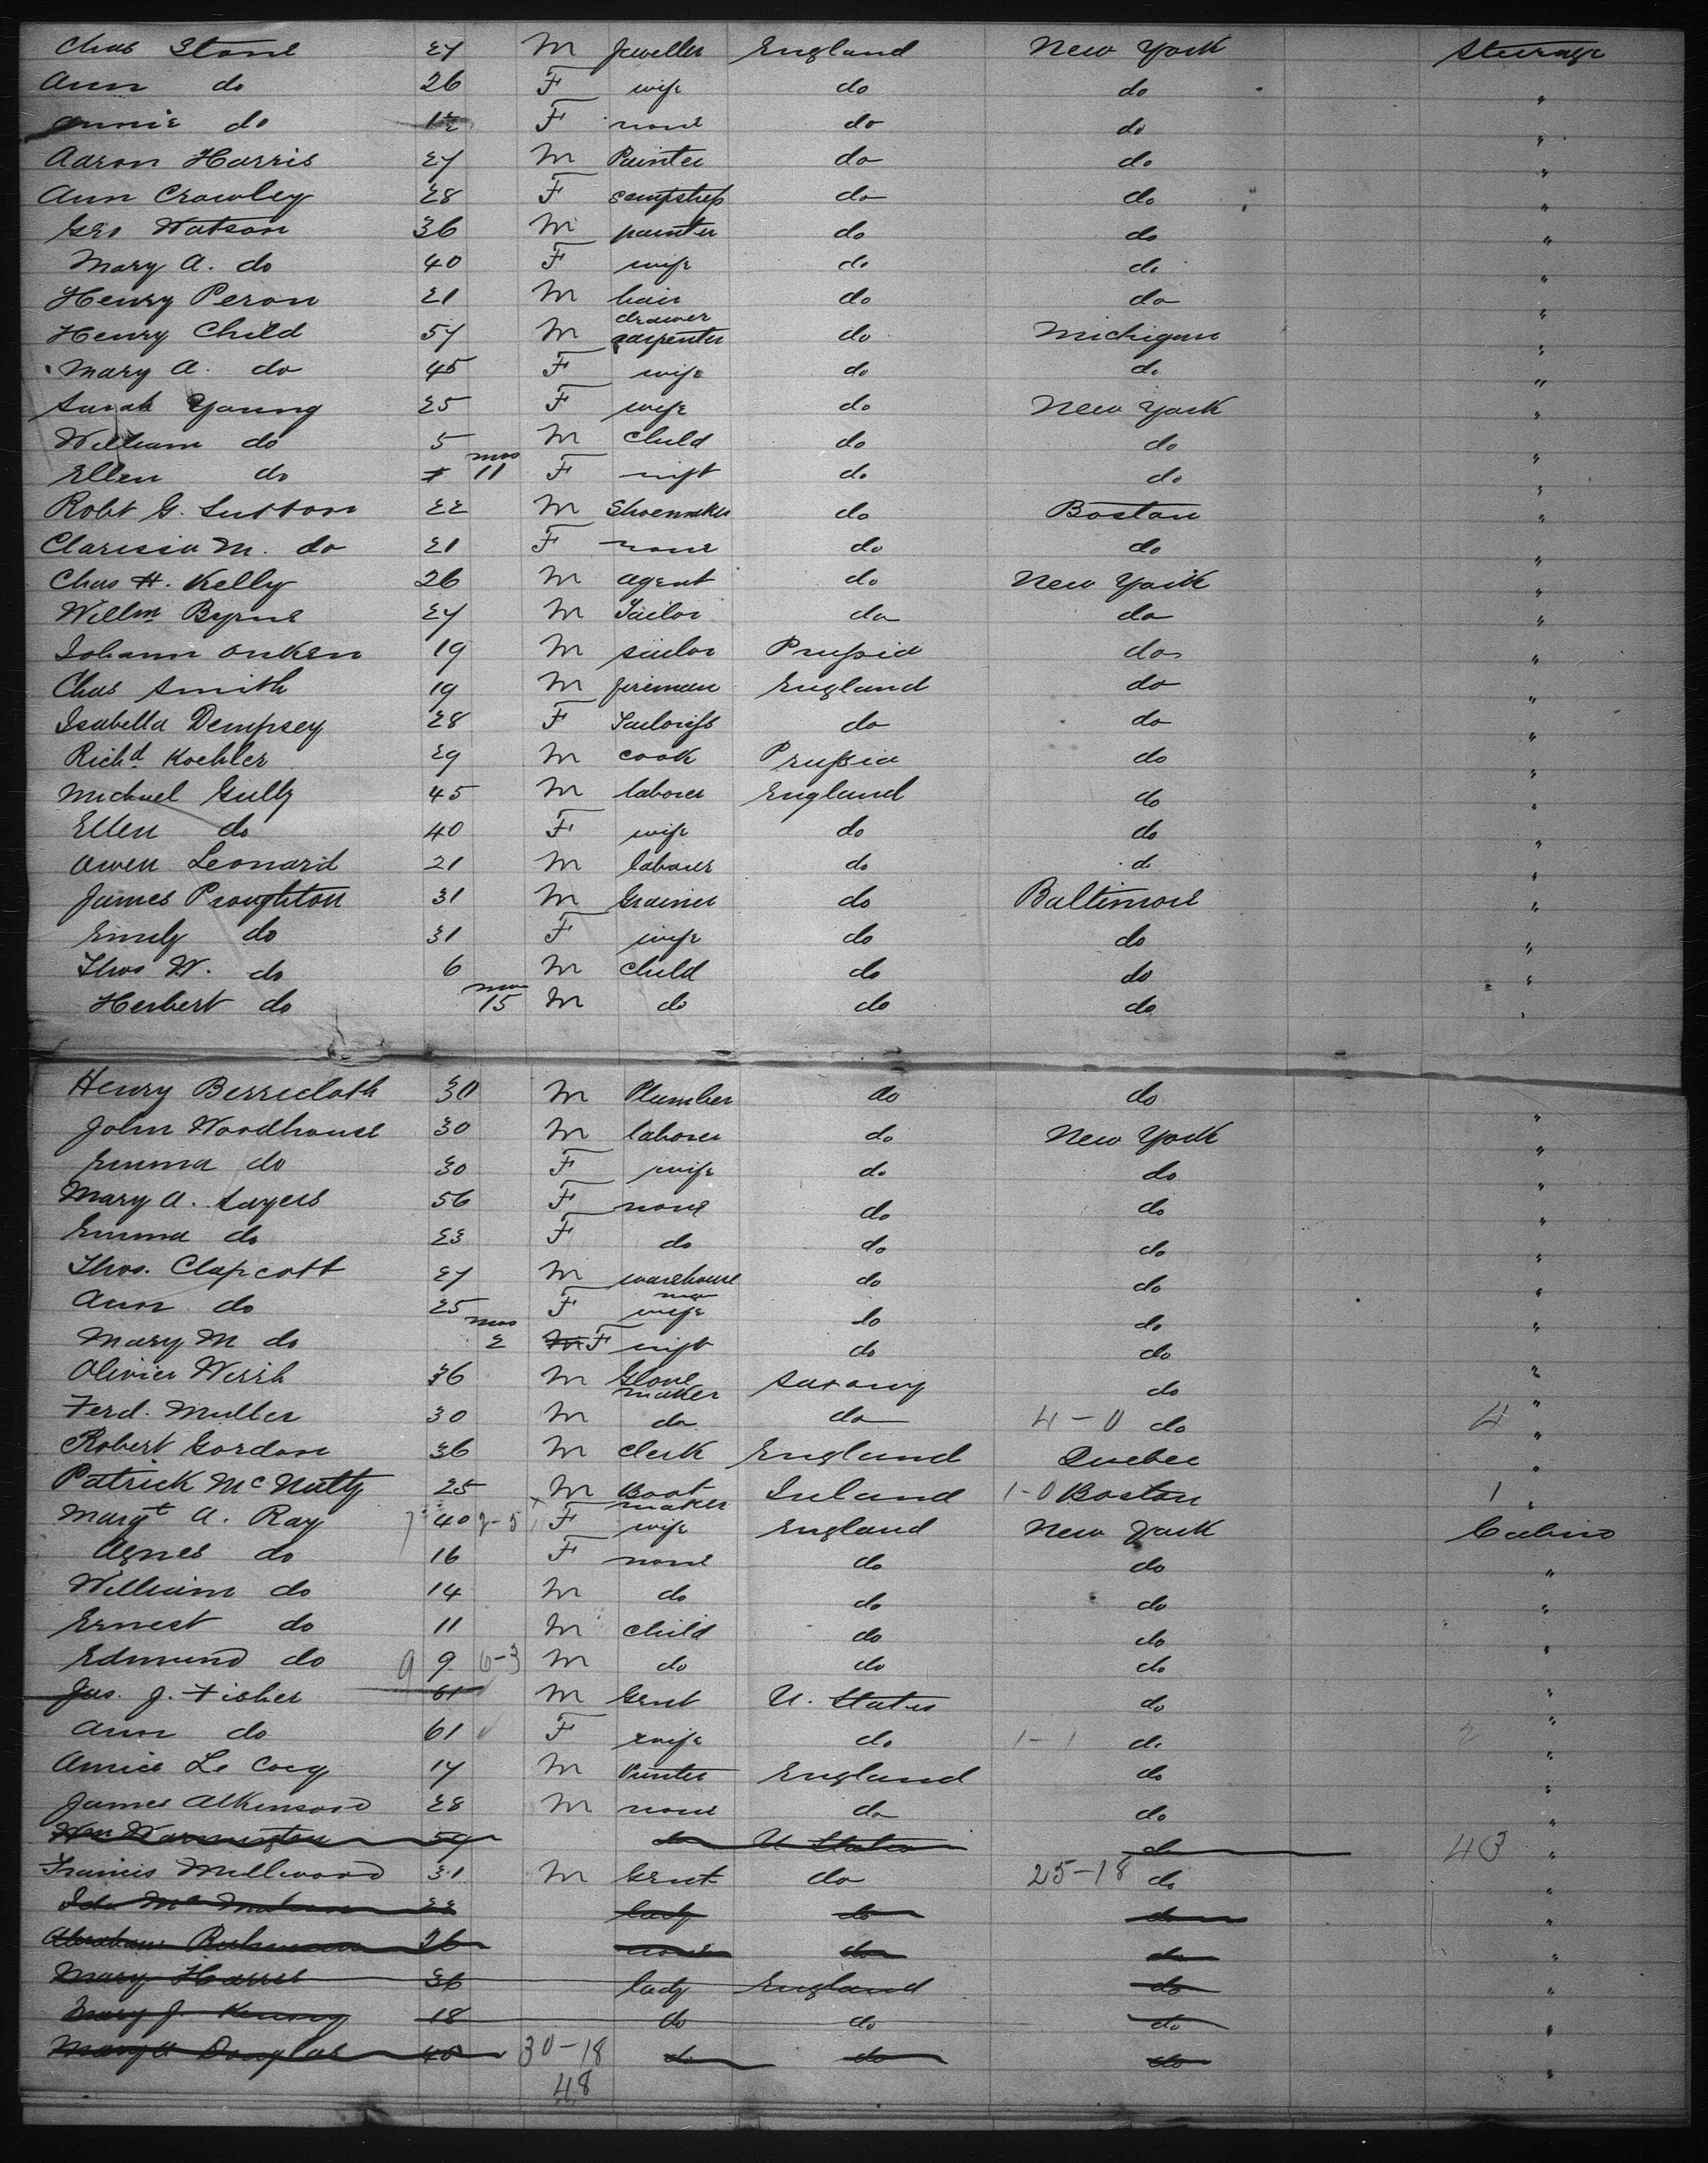 Chas Stone 27 M Jeweller England New York Steerage
Ann do 26 F wife do do "
Annie do 1½ F none do do "
Aaron Harris 27 M Painter do do "
Ann Crowley 28 F sempstress do do "
Geo Watson 36 M painter do do "
Mary A. do 40 F wife do do "
Henry Peron 21 M hair drawer do do "
Henry Child 57 M carpenter do Michigan "
Mary A. do 45 F wife do do "
Sarah Young 25 F wife do New York "
William do 5 M Child do do "
Ellen do mos 11 F inft do do "
Robt G. Sutton 22 M Shoemaker do Boston "
Clarissa M. do 21 F none do do "
Chas H. Kelly 26 M agent do New York "
Willm Byrne 27 M Tailor do do "
Johann Onken 19 M sailor Prussia do "
Chas Smith 19 M fireman England do "
Isabella Dempsey 28 F Tailoress do do "
Richd Koehler 29 M cook Prussia do "
Michael Gully 45 M laborer England do "
Ellen do 40 F wife do do "
Owen Leonard 21 M laborer do do "
James Proughton 31 M Grainer do Baltimore "
Emily do 31 F wife do do "
Thos W. do 6 M Child do do "
Herbert do mos 15 M do do do "
Henry Berrecloth 30 M Plumber do do "
John Woodhouse 30 M laborer do New York "
Emma do 30 F wife do do "
Mary A. Sayers 56 F none do do "
Emma do 23 F do do do "
Thos. Clapcott 27 M warehouse man do do "
Ann do 25 F wife do do "
Mary M do mos 2 M F inft do do "
Olivier Wirih 36 M Glove maker Saxony do "
Ferd. Muller 30 M do do 4-0 do 4 "
Robert Gordon 36 M Clerk England Quebec "
Patrick McNutty 25 M Boot maker Ireland 1-0 Boston 1 "
Margt A. Ray 40 2-5 F wife England New York Cabin
Agnes do 16 F none do do "
William do 14 M do do do "
Ernest do 11 M child do do "
Edmund do 9 9 6-3 M do do do "
Jas. J. Fisher 61 M Gent U. States do "
Ann do 61 F wife do 1-1 do 2 "
Amice Le Cocq 17 M Printer England do "
James Atkinson 28 M none do do "
Wm Warmington 59 do U States do 43 "
Francis Millward 31 M Gent do 25-18 do "
22 lady do do "
26 none do do "
Mary Harris 36 lady England do "
Mary J. 18 do do do "
Mary A Douglas 40 30-18 do do do "
48